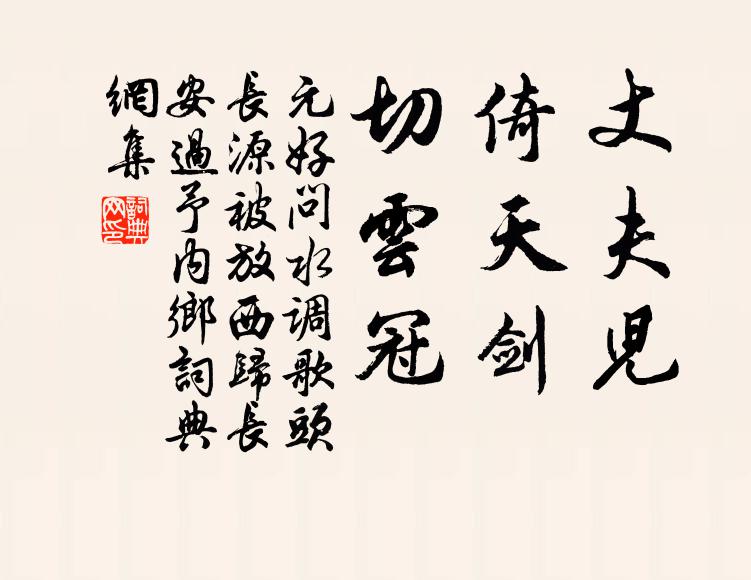 丈夫児
倚天劍
切雲冠
元好問水调歌頭
長源被放西歸長
安過予内鄉詞典
網集
詞典
网印